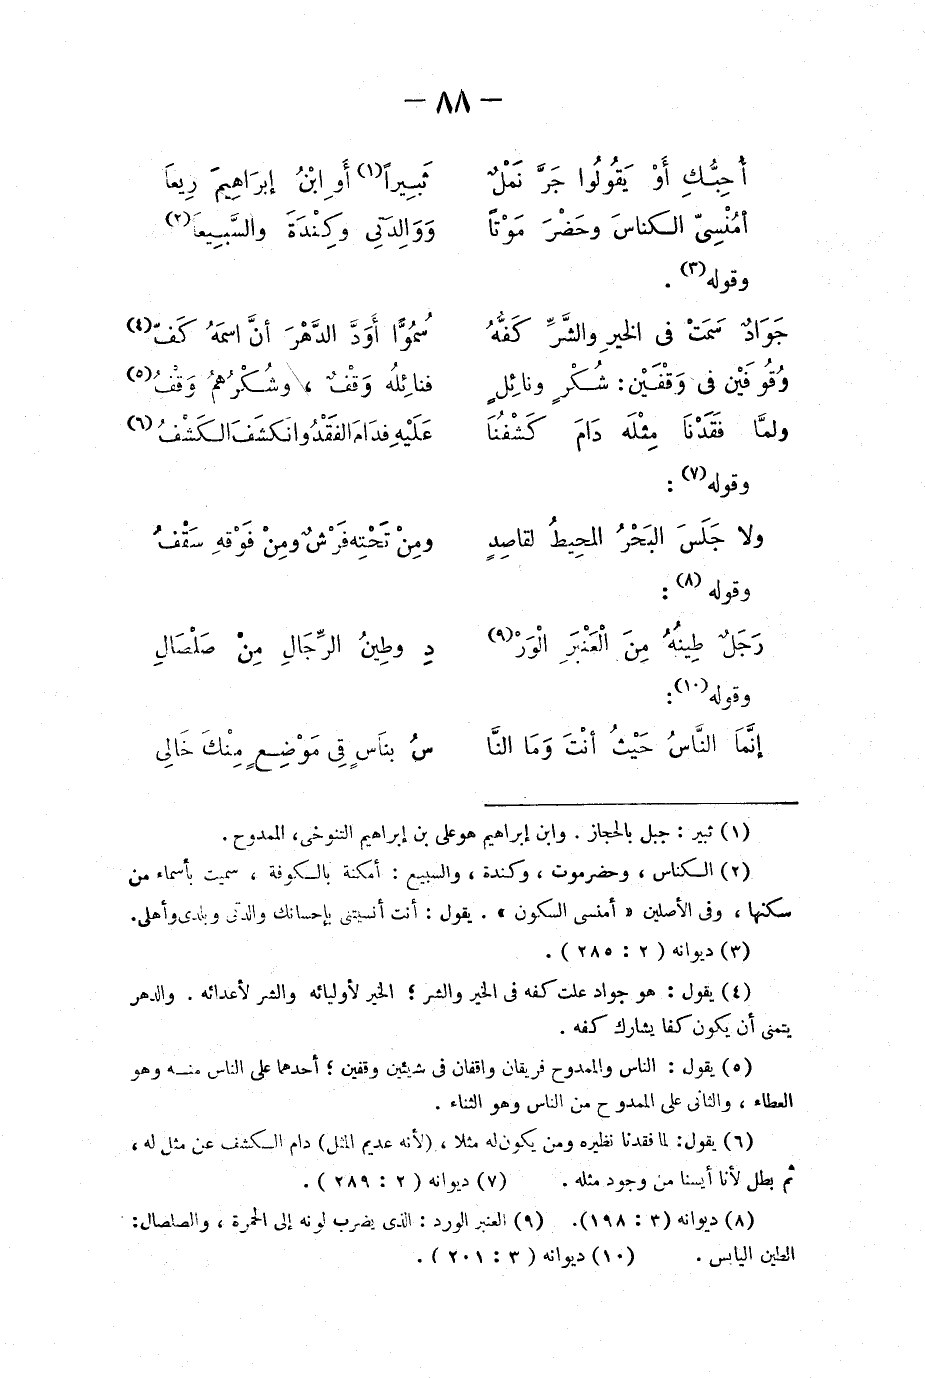 — ٨٨ —
أُحِبُّكِ أَوْ يَقُولُوا جَرَّ نَمْلٌ ثَبِيراً(١) أَوِ ابْنُ إبرَاهِيمَ رِيعاَ
أَمُنْسِىَّ الكناسَ وحَضْرَ مَوْتاً وَوَالِدَتِى وكِنْدَةَ والسَّبِيعاَ(٢)
وقوله(٣) .
جَوَادٌ سَمَتْ فى الخيرِ والشَّرِّ كَفُّهُ سُمُوًّا أَوَدَّ الدَّهْرَ أنَّ اسمَهُ كَفّ(٤)
وُقُوفَيْن فى وَقْفَيْن : شُكْرٍ ونائِلٍ فنائِلُه وَقْفٌ ، وشُكْرُهُمُ وَقْفُ(٥)
ولمَّا فَقَدْنَا مِثْلَه دَامَ كَشْفُنَا عَلَيْهِ فدَامَ الفَقْدُ وانكشَفَ الكَشْفُ(٦)
وقوله(٧) :
ولا جَلَسَ البَحْرُ المحِيطُ لقاصِدٍ ومِنْ تَحْتِهِ فَرْشٌ ومِنْ فَوْقهِ سَقْفُ
وقوله (٨) :
رَجَلٌ طِينُهُ مِنَ الْعَنْبَرِ الْوَرْ(٩) دِ وطِينُ الرِّجَالِ مِنْ صَلْصَالِ
وقوله(١٠):
إنَّمَا النَّاسُ حَيْثُ أنْتَ وَمَا النَّا سُ بنَاسٍ فِى مَوْضِعٍ مِنْكَ خَالِى
(١) ثبير : جبل بالحجاز . وابن إبراهيم هو على بن إبراهيم التنوخى، الممدوح .
(٢) الكناس ، وحضرموت ، وكندة ، والسبيع : أمكنة بالكوفة ، سميت بأسماء من
سكنها ، وفى الأصلين « أمنسى السكون » . يقول : أنت أنسيتنى بإحسانك والدتى وبلدى وأهلى.
(٣) ديوانه ( ٢ : ٢٨٥ ) .
(٤) يقول : هو جواد علت كفه فى الخير والشر ؛ الخير لأوليائه والشر لأعدائه . والدهر
يتمنى أن يكون كفا يشارك كفه .
(٥) يقول : الناس والممدوح فريقان واقفان فى شيئين وقفين ؛ أحدهما على الناس منه وهو
العطاء ، والثانى على الممدوح من الناس وهو الثناء .
(٦) يقول: لما فقدنا نظيره ومن يكون له مثلا ، (لأنه عديم المثل) دام الكشف عن مثل له ،
ثم بطل لأنا أيسنا من وجود مثله . (٧) ديوانه ( ٢ : ٢٨٩ ) .
(٨) ديوانه (٣ : ١٩٨). (٩) العنبر الورد : الذى يضرب لونه إلى الحمرة ، والصلصال:
الطين اليابس . (١٠) ديوانه ( ٣ : ٢٠١ ) .